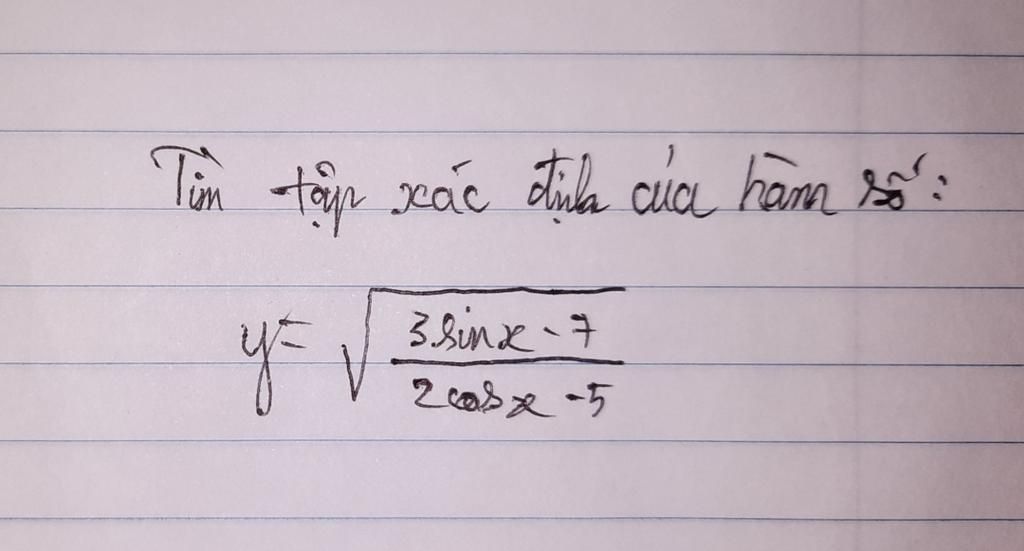 Tìm tập xác định của hàm số:
y = √((3 sinx - 7)/(2cosx - 5))